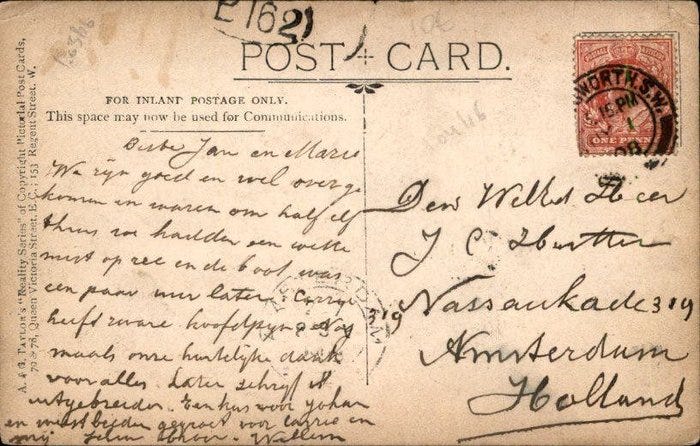 E 162
POST CARD.
FOR INLANT POSTAGE ONLY.
This space may now be used for Communications.
A. & G. TAYLOR'S "Reality Series" of Copyright Pictorial Post Cards,
70 & 78, Queen Victoria Street, E.C.; 153 Regent Street, W.
WORTH.S.W.
15 PM
08
ONE PENNY
Beste Jan en Marie
We zijn goed en wel overge
komen en waren om half elf
thuis we hadden een
mist op zee en de boot was
een paar uur later. Carry
heeft zware hoofdpijn. Nog
maals onze hartelijke dank
voor alles. Later schrijf ik
uitgebreider. Een kus voor Johan
en weest beiden gegroet voor Carrie en
mij. Willem
Den Weled Heer
J C
Nassaukade 319
319
Amsterdam
Holland